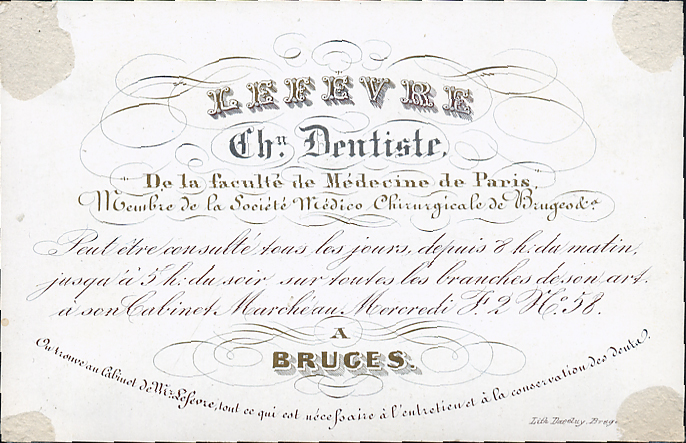 LEFÉVRE
Chn. Dentiste,
"De la faculté de Médecine de Paris,"
Membre de la Société Médico Chirurgicale de Bruges &a.
Peut être consulté tous les jours, depuis 8 h: du matin,
jusqu'à 5 h: du soir sur toutes les branches de son art.
a son Cabinet Marché au Mercredi F. 2 No. 58.
A
BRUGES.
On trouve au Cabinet de Mr. Lefévre, tout ce qui est nécessaire à l'entretien et à la conservation des dents.
Lith. Daveluy, Bruges